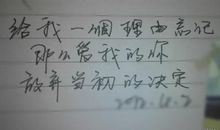 给我一個理由忘记
那么爱我的你
放弃当初的决定